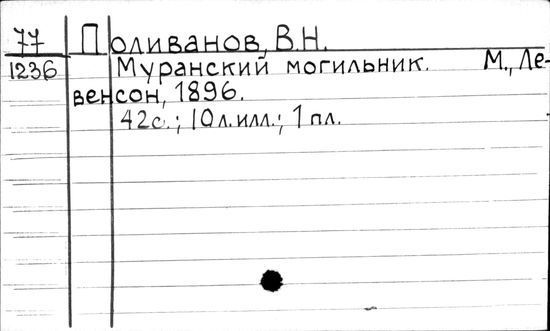 77 Поливанов, В.Н.
1236 Муранский могильник. М., Ле-
венсон, 1896.
42с.; 10л.илл.; 1 пл.